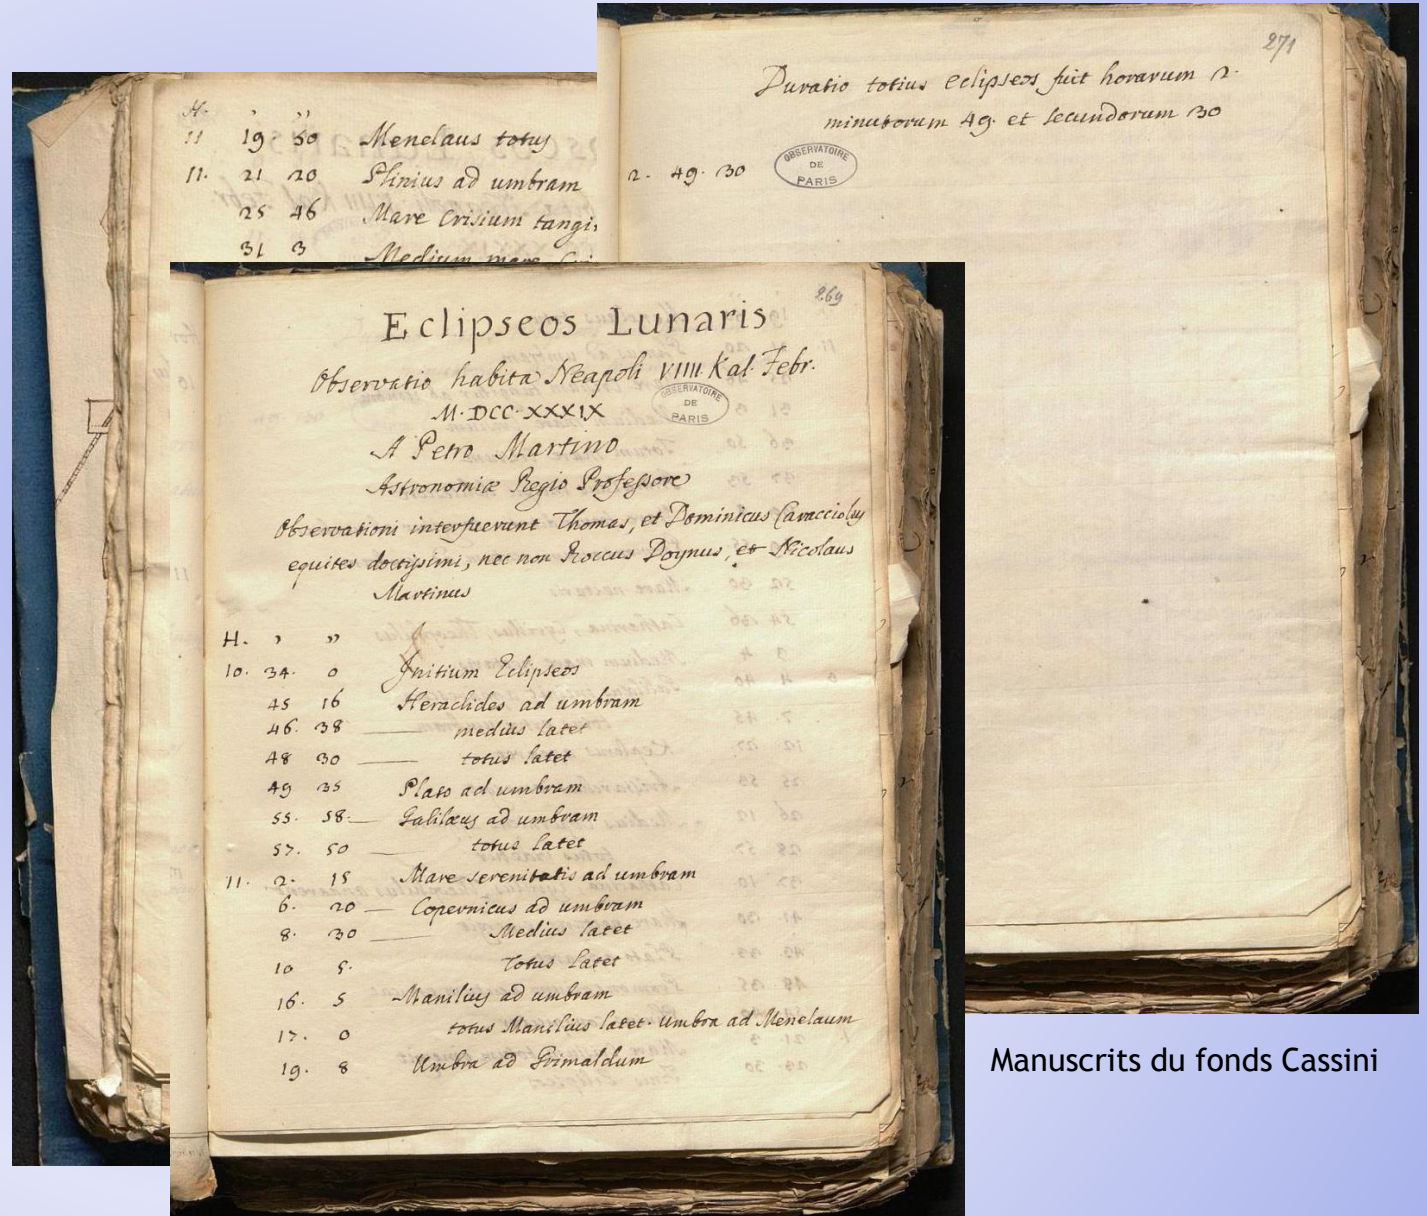 H. ' ''
11 19 50 Menelaus totus
11. 21 20 Plinius ad umbram
25 46 Mare Crisium tangi
31 3 Medium mare
271
Duratio totius Eclipseos fuit horarum 2.
minutorum 49. et secundorum 30
2. 49. 30
OBSERVATOIRE
DE
PARIS
269
Eclipseos Lunaris
Observatio habita Neapoli VIIII. Kal. Febr.
OBSERVATOIRE
DE
PARIS
M.DCC.XXXIX
A Petro Martino
Astronomiæ Regio Professore
Observationi interfuerunt Thomas, et Dominicus Caracciolus
equites doctissimi, nec non Roccus Doynus, et Nicolaus
Martinus
H. ' ''
10. 34. 0 Initium Eclipseos
45 16 Heraclides ad umbram
46. 38 — medius latet
48 30 — totus latet
49 35 Plato ad umbram
55. 58. — Galilæus ad umbram
57. 50 — totus latet
11. 2. 15 Mare serenitatis ad umbram
6. 20 — Copernicus ad umbram
8. 30 — Medius latet
10 5. Totus latet
16. 5 Manilius ad umbram
17. 0 totus Manilius latet. Umbra ad Menelaum
19. 8 Umbra ad Grimaldum
Manuscrits du fonds Cassini